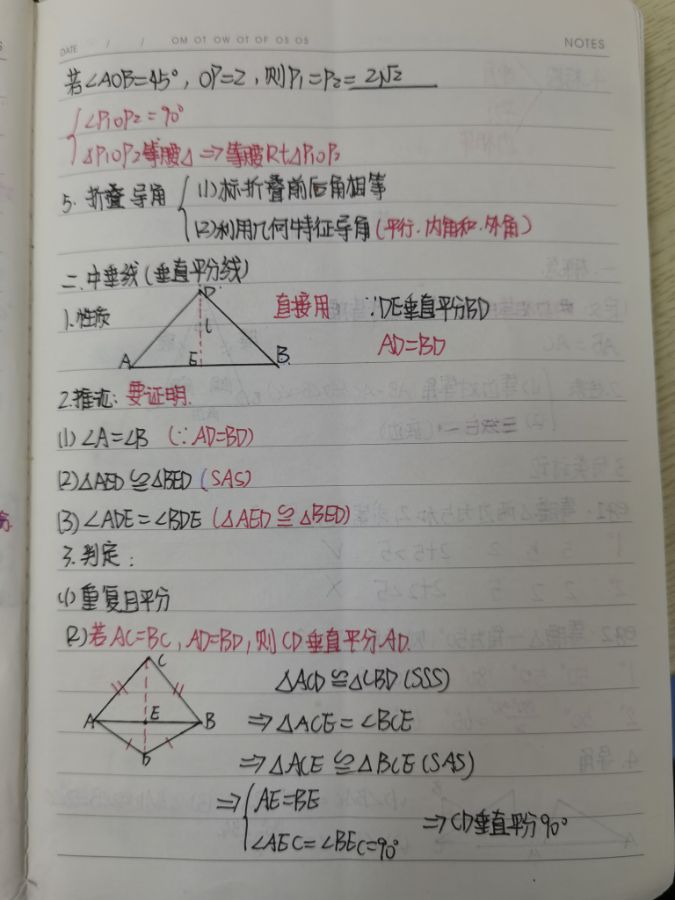 DATE / / OM OT OW OT OF OS OS NOTES
若∠AOB=45°, OP=2, 则P₁=P₂= 2√2
∠P₁OP₂=90°
△P₁OP₂等腰△ ⇒等腰Rt△P₁OP₂
5. 折叠导角 (1)标折叠前后角相等
(2)利用几何特征导角(平行.内角和.外角)
二.中垂线(垂直平分线)
D
1.性质 直接用 ∵DE垂直平分BD
l
A E B AD=BD
2.推论: 要证明.
(1) ∠A=∠B (∵AD=BD)
(2)△AED≌△BED (SAS)
(3) ∠ADE=∠BDE (△AED≌△BED)
3.判定:
(1)重复且平分
(2)若AC=BC, AD=BD, 则CD垂直平分AD.
C △ACD≌△CBD (SSS)
A E B ⇒△ACE=∠BCE
D ⇒△ACE≌△BCE (SAS)
⇒ AE=BE
∠AEC=∠BEC=90° ⇒CD垂直平分90°